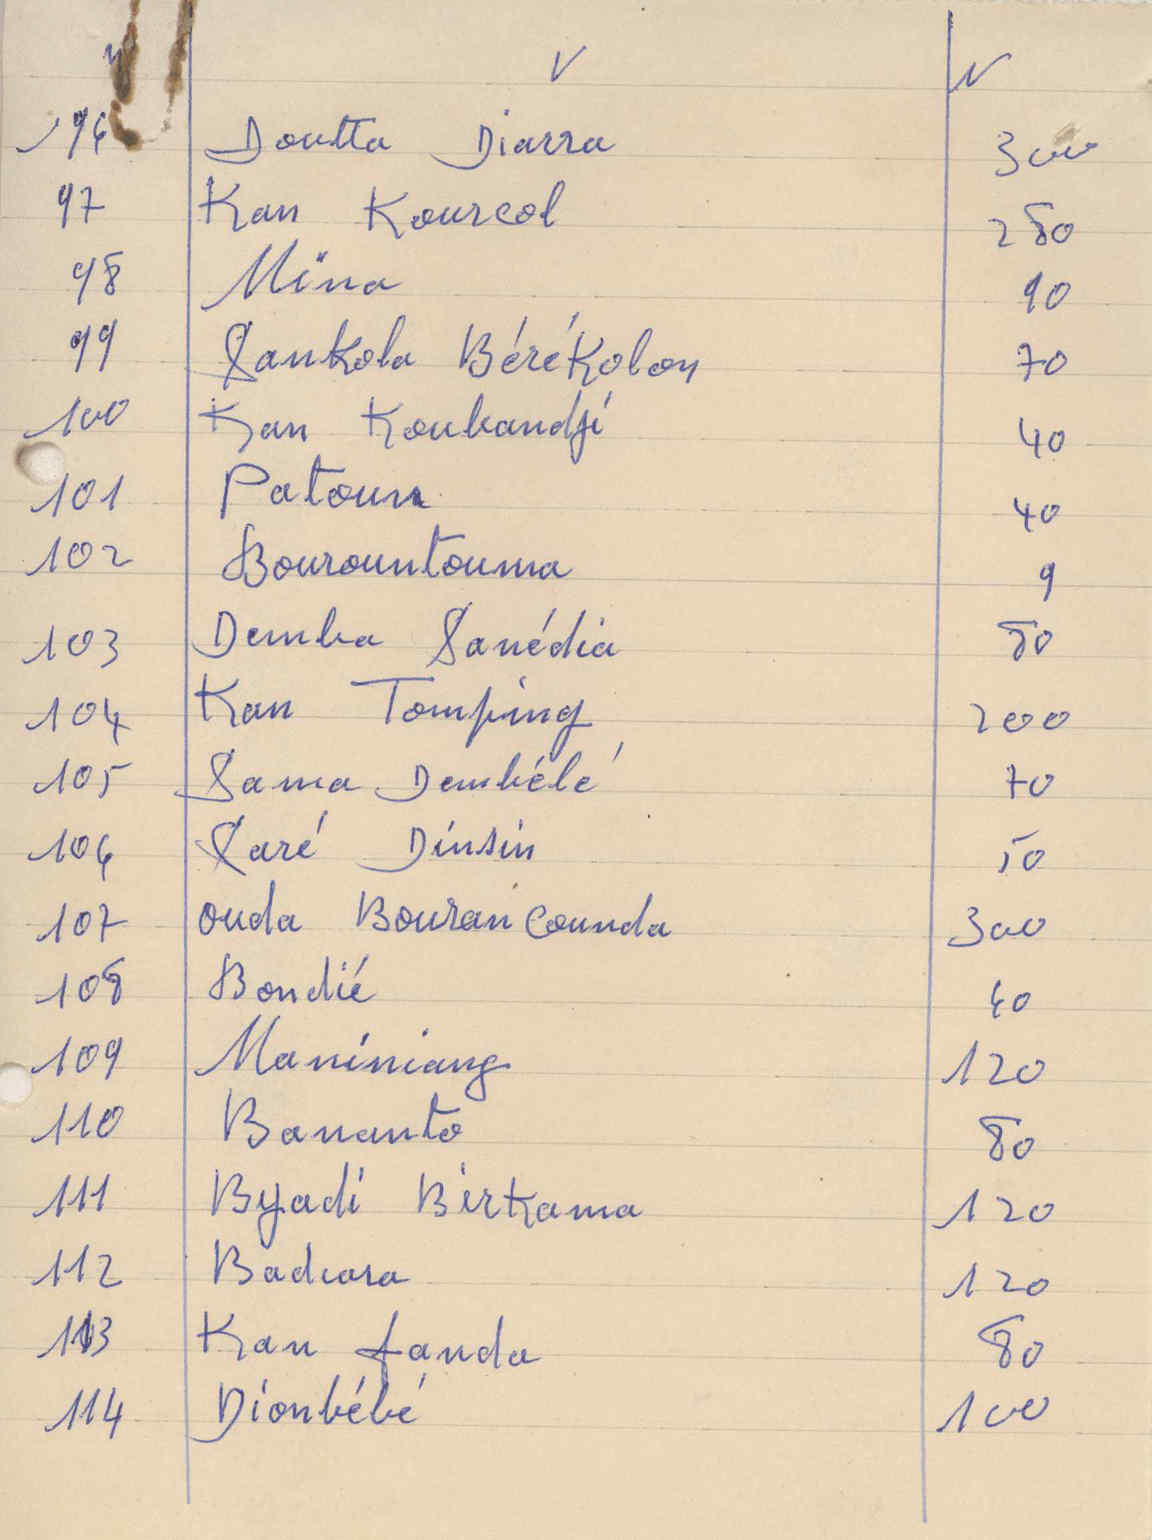 n V N
96 Doutta Diarra 300
97 Kan Kourcol 280
98 Mina 90
99 Sankola BéréKolon 70
100 Kan Koukandji 40
101 Patoum 40
102 Bourountouma 9
103 Demba Sanédia 80
104 Kan Tomping 200
105 Sama Dembélé 70
106 Saré Dinsin 50
107 ouda Bouran Counda 300
108 Bondié 60
109 Maniniang 120
110 Bananto 80
111 Byadi Birkama 120
112 Badiara 120
113 Kan fanda 80
114 Dionbébé 100